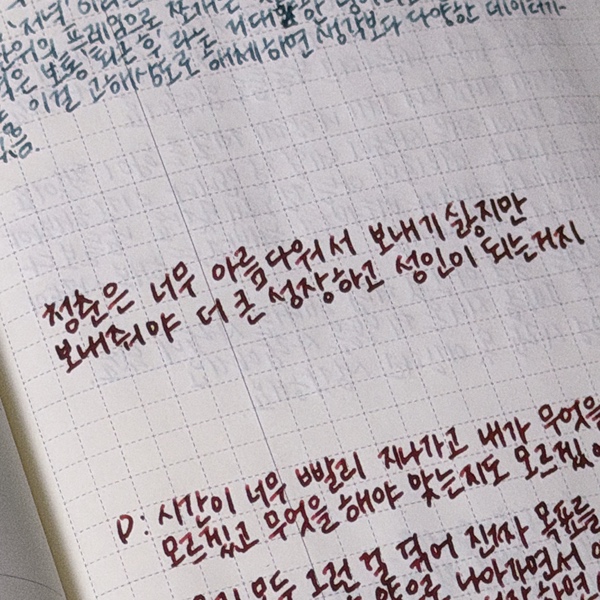 단위의 프레임으로 쪼개는
보통 퇴근 후 라는 거대한
이걸 고해상도로 해체하면 생각보다 다양한 데이터가
청춘은 너무 아름다워서 보내기 싫지만
보내줘야 더 큰 성장하고 성인이 되는거지
D: 시간이 너무 빨리 지나가고 내가 무엇을
모르겠고 무엇을 해야 맞는지도 모르겠
모두 그런 걸 겪어 진짜 목표를
나아가면서